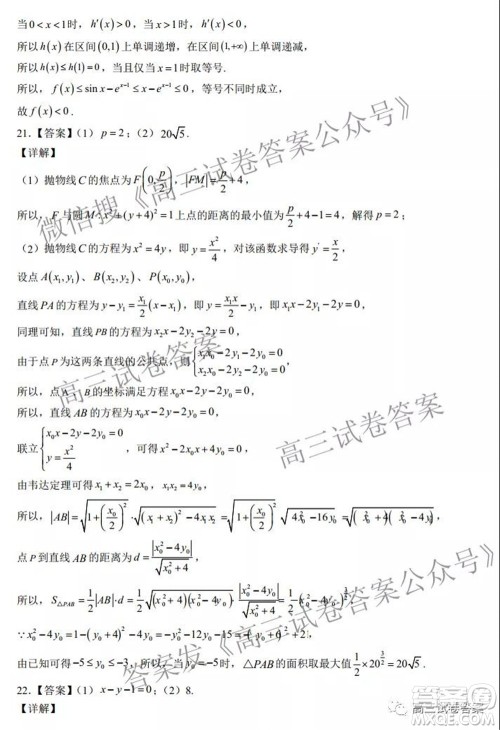 当0<x<1时，h′(x)>0，当x>1时，h′(x)<0，
所以h(x)在区间(0,1)上单调递增，在区间(1,+∞)上单调递减，
所以h(x)≤h(1)=0，当且仅当x=1时取等号.
所以，f(x)≤sin x−e^{x−1}≤x−e^{x−1}≤0，等号不同时成立，
故f(x)<0.
21.【答案】（1）p=2；（2）20√5.
【详解】
（1）抛物线C的焦点为F(0,p/2)，|FM|=p/2+4，
所以，F与圆M：x²+(y+4)²=1上点的距离的最小值为p/2+4−1=4，解得p=2；
（2）抛物线C的方程为x²=4y，即y=x²/4，对该函数求导得y′=x/2，
设点A(x₁,y₁)、B(x₂,y₂)、P(x₀,y₀)，
直线PA的方程为y−y₁=x₁/2(x−x₁)，即y=x₁x/2−y₁，即x₁x−2y₁−2y=0，
同理可知，直线PB的方程为x₂x−2y₂−2y=0，
由于点P为这两条直线的公共点，则{x₁x₀−2y₁−2y₀=0
x₂x₀−2y₂−2y₀=0，
所以，点A、B的坐标满足方程x₀x−2y−2y₀=0，
所以，直线AB的方程为x₀x−2y−2y₀=0，
联立{x₀x−2y−2y₀=0
y=x²/4，可得x²−2x₀x+4y₀=0，
由韦达定理可得x₁+x₂=2x₀，x₁x₂=4y₀，
所以，|AB|=√(1+(x₀/2)²)·√((x₁+x₂)²−4x₁x₂)=√(1+(x₀/2)²)·√(4x₀²−16y₀)=√((x₀²+4)(x₀²−4y₀))，
点P到直线AB的距离为d=|x₀²−4y₀|/√(x₀²+4)，
所以，S△PAB=1/2|AB|·d=1/2√((x₀²+4)(x₀²−4y₀))·|x₀²−4y₀|/√(x₀²+4)=1/2(x₀²−4y₀)^{3/2}，
∵x₀²−4y₀=1−(y₀+4)²−4y₀=−y₀²−12y₀−15=−(y₀+6)²+21，
由已知可得−5≤y₀≤−3，所以，当y₀=−5时，△PAB的面积取最大值1/2×20^{3/2}=20√5.
22.【答案】（1）x−y−1=0；（2）8.
【详解】
微信搜《高三试卷答案公众号》
高三试卷答案
高三试卷答案
答案发《高三试卷答案公众号》
高三试卷答案